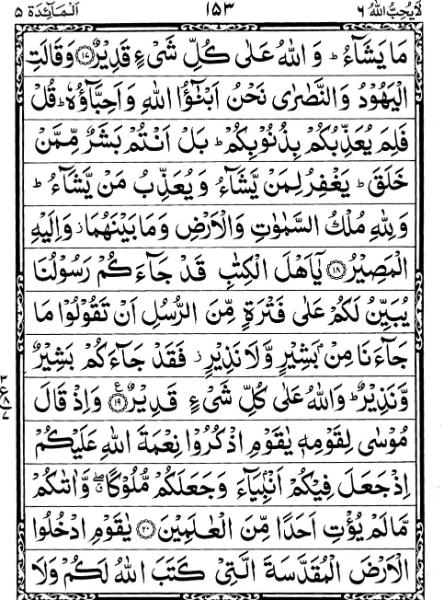 لَايُحِبُّ اللهُ ٦ ١٥٣ اَلْمَآئِدَة ٥
مَا يَشَآءُ ؕ وَ اللهُ عَلٰى كُلِّ شَىْءٍ قَدِيْرٌ ۝۱۷ وَقَالَتِ
الْيَهُوْدُ وَالنَّصٰرٰى نَحْنُ اَبْنٰٓؤُا اللهِ وَاَحِبَّآؤُهٗ ؕ قُلْ
فَلِمَ يُعَذِّبُكُمْ بِذُنُوْبِكُمْ ؕ بَلْ اَنْتُمْ بَشَرٌ مِّمَّنْ
خَلَقَ ؕ يَغْفِرُ لِمَنْ يَّشَآءُ وَيُعَذِّبُ مَنْ يَّشَآءُ ؕ
وَلِلّٰهِ مُلْكُ السَّمٰوٰتِ وَالْاَرْضِ وَمَا بَيْنَهُمَا ؗ وَاِلَيْهِ
الْمَصِيْرُ ۝۱۸ يٰٓاَهْلَ الْكِتٰبِ قَدْ جَآءَكُمْ رَسُوْلُنَا
يُبَيِّنُ لَكُمْ عَلٰى فَتْرَةٍ مِّنَ الرُّسُلِ اَنْ تَقُوْلُوْا مَا
جَآءَنَا مِنْۢ بَشِيْرٍ وَّلَا نَذِيْرٍ ؗ فَقَدْ جَآءَكُمْ بَشِيْرٌ
وَّنَذِيْرٌ ؕ وَاللهُ عَلٰى كُلِّ شَىْءٍ قَدِيْرٌ ۝۱۹ ع وَاِذْ قَالَ
مُوْسٰى لِقَوْمِهٖ يٰقَوْمِ اذْكُرُوْا نِعْمَةَ اللهِ عَلَيْكُمْ
اِذْ جَعَلَ فِيْكُمْ اَنْۢبِيَآءَ وَجَعَلَكُمْ مُّلُوْكًا ۖۗ وَّاٰتٰىكُمْ
مَّا لَمْ يُؤْتِ اَحَدًا مِّنَ الْعٰلَمِيْنَ ۝۲۰ يٰقَوْمِ ادْخُلُوا
الْاَرْضَ الْمُقَدَّسَةَ الَّتِىْ كَتَبَ اللهُ لَكُمْ وَلَا